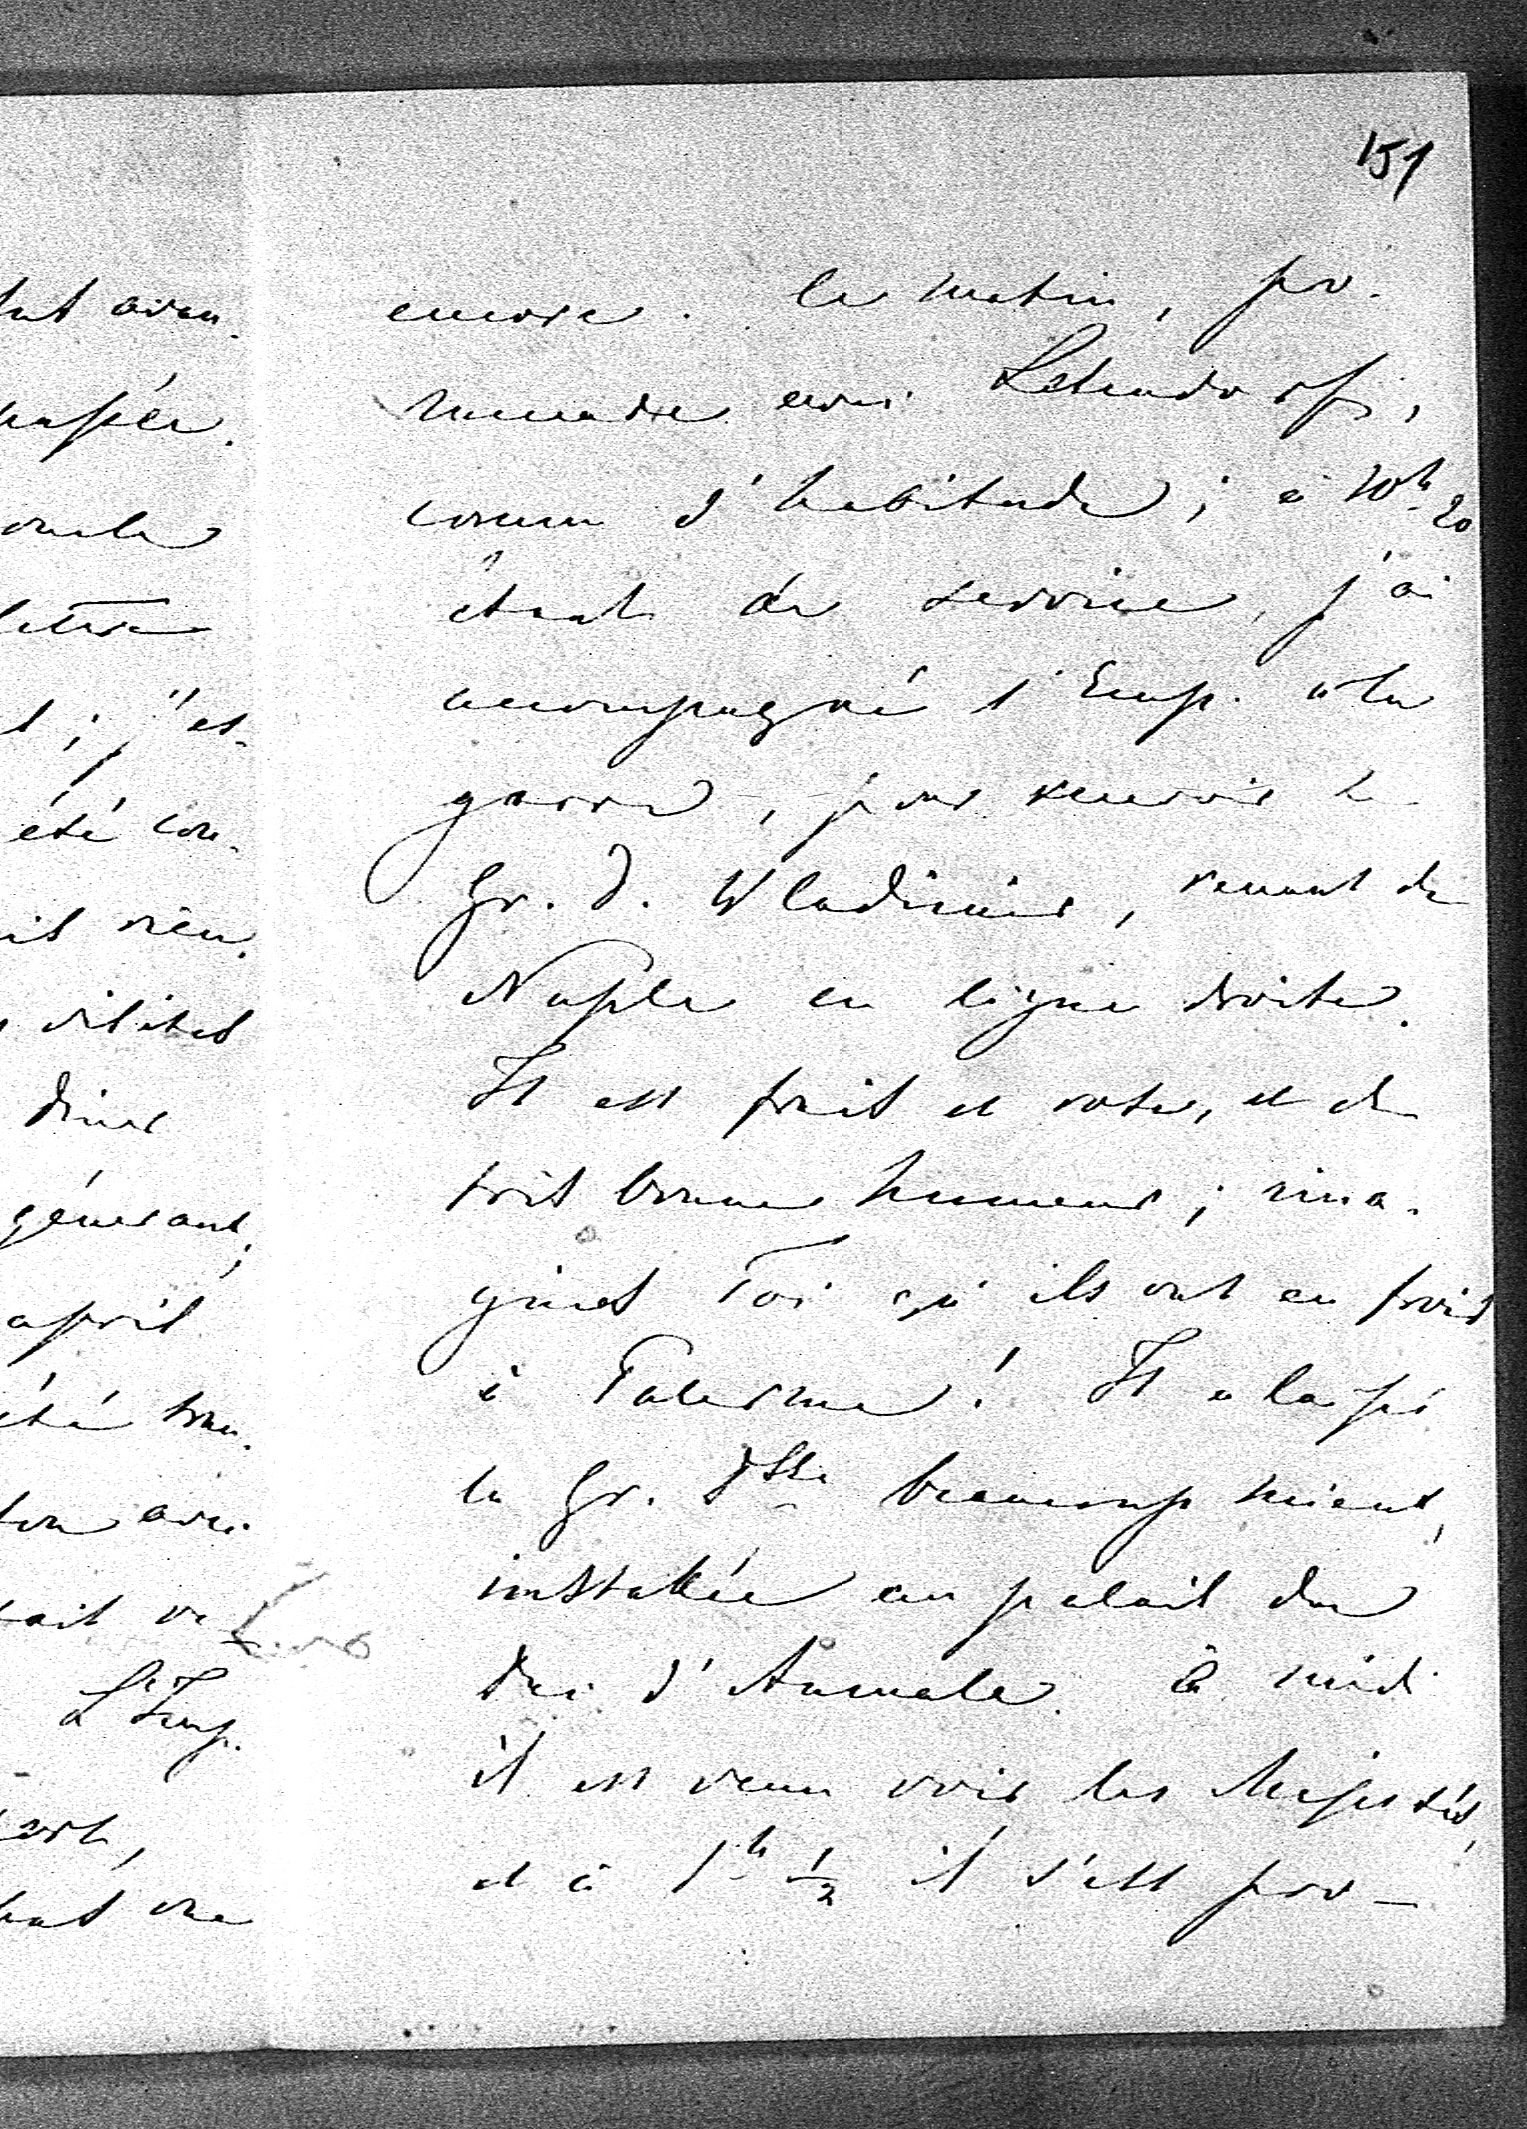 151
encore. Le matin, pro-
menade avec Lehndorff,
comme d'habitude; à 10h 20
étant de service, j'ai
accompagné l'Emp. à la
garre, pour recevoir le
Gr. D. Wladimir, venant de
Naple en ligne droite.
Il est frais et rose, et de
très bonne humeur; ima-
gines Toi qu'ils ont eu froid
à Palerme! Il a laissé
la Gr. Dsse beaucoup mieux,
installée au palais du
duc d'Aumale. à midi
il est venu voir les Majestés,
et à 1h 1/2 il s'est pro-
passée.
lettre
; j'es-
été con-
rien.
visites
diner
après
été
avec
L'Imp.